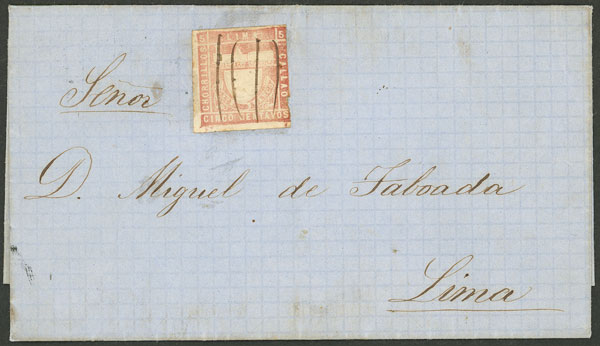 5 LIMA 5
CHORRILLOS
CALLAO
CINCO CENTAVOS
Señor
D. Miguel de Taboada
Lima